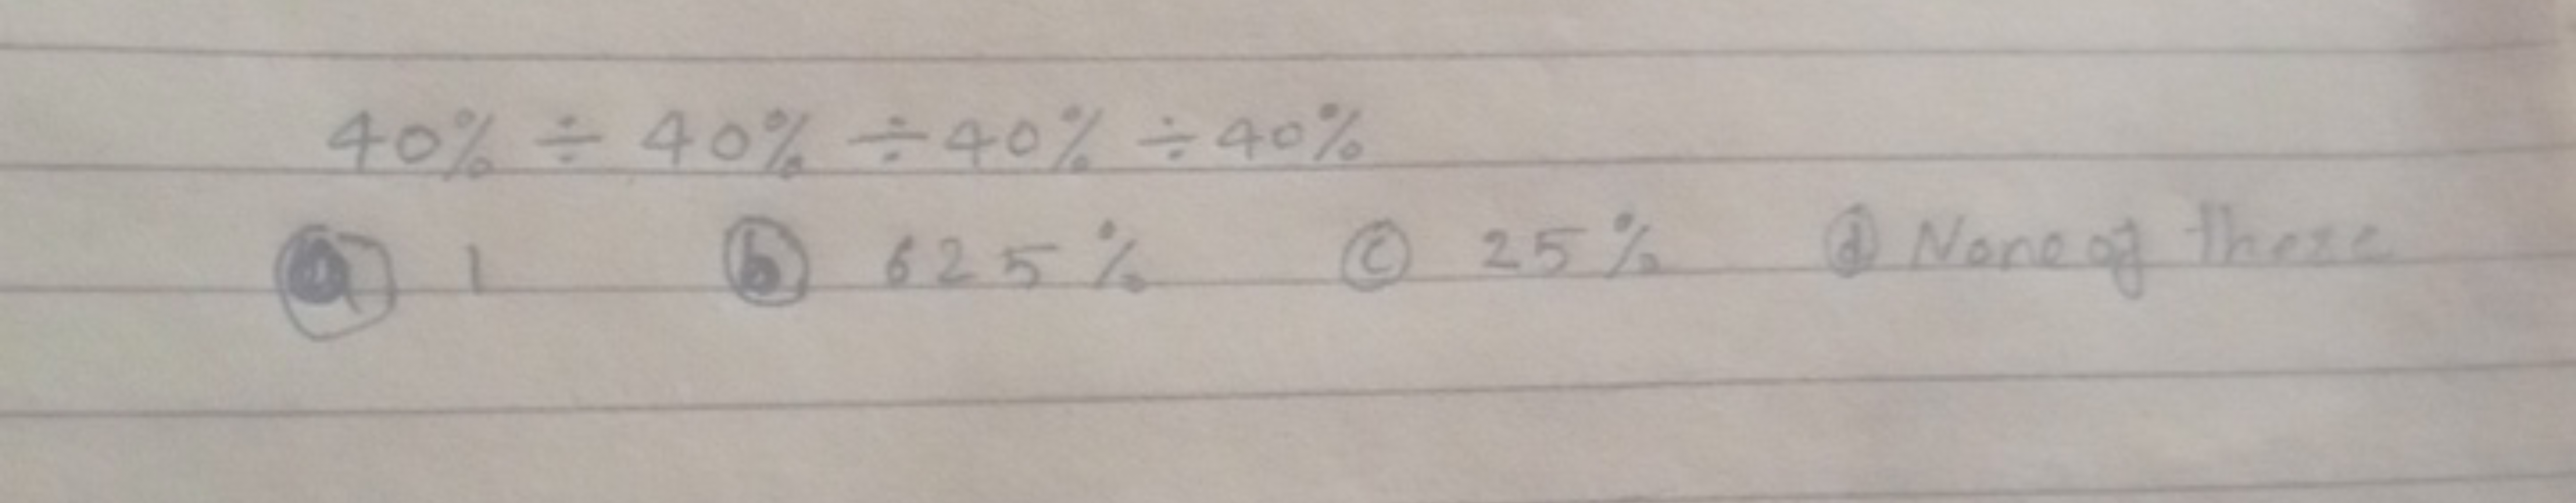 40% ÷ 40% ÷ 40% ÷ 40%
ⓐ 1 ⓑ 625% ⓒ 25% ⓓ None of these